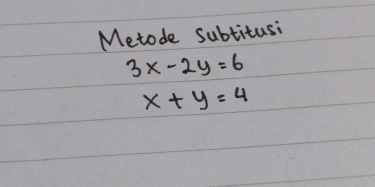 Metode Subtitusi
3x - 2y = 6
x + y = 4